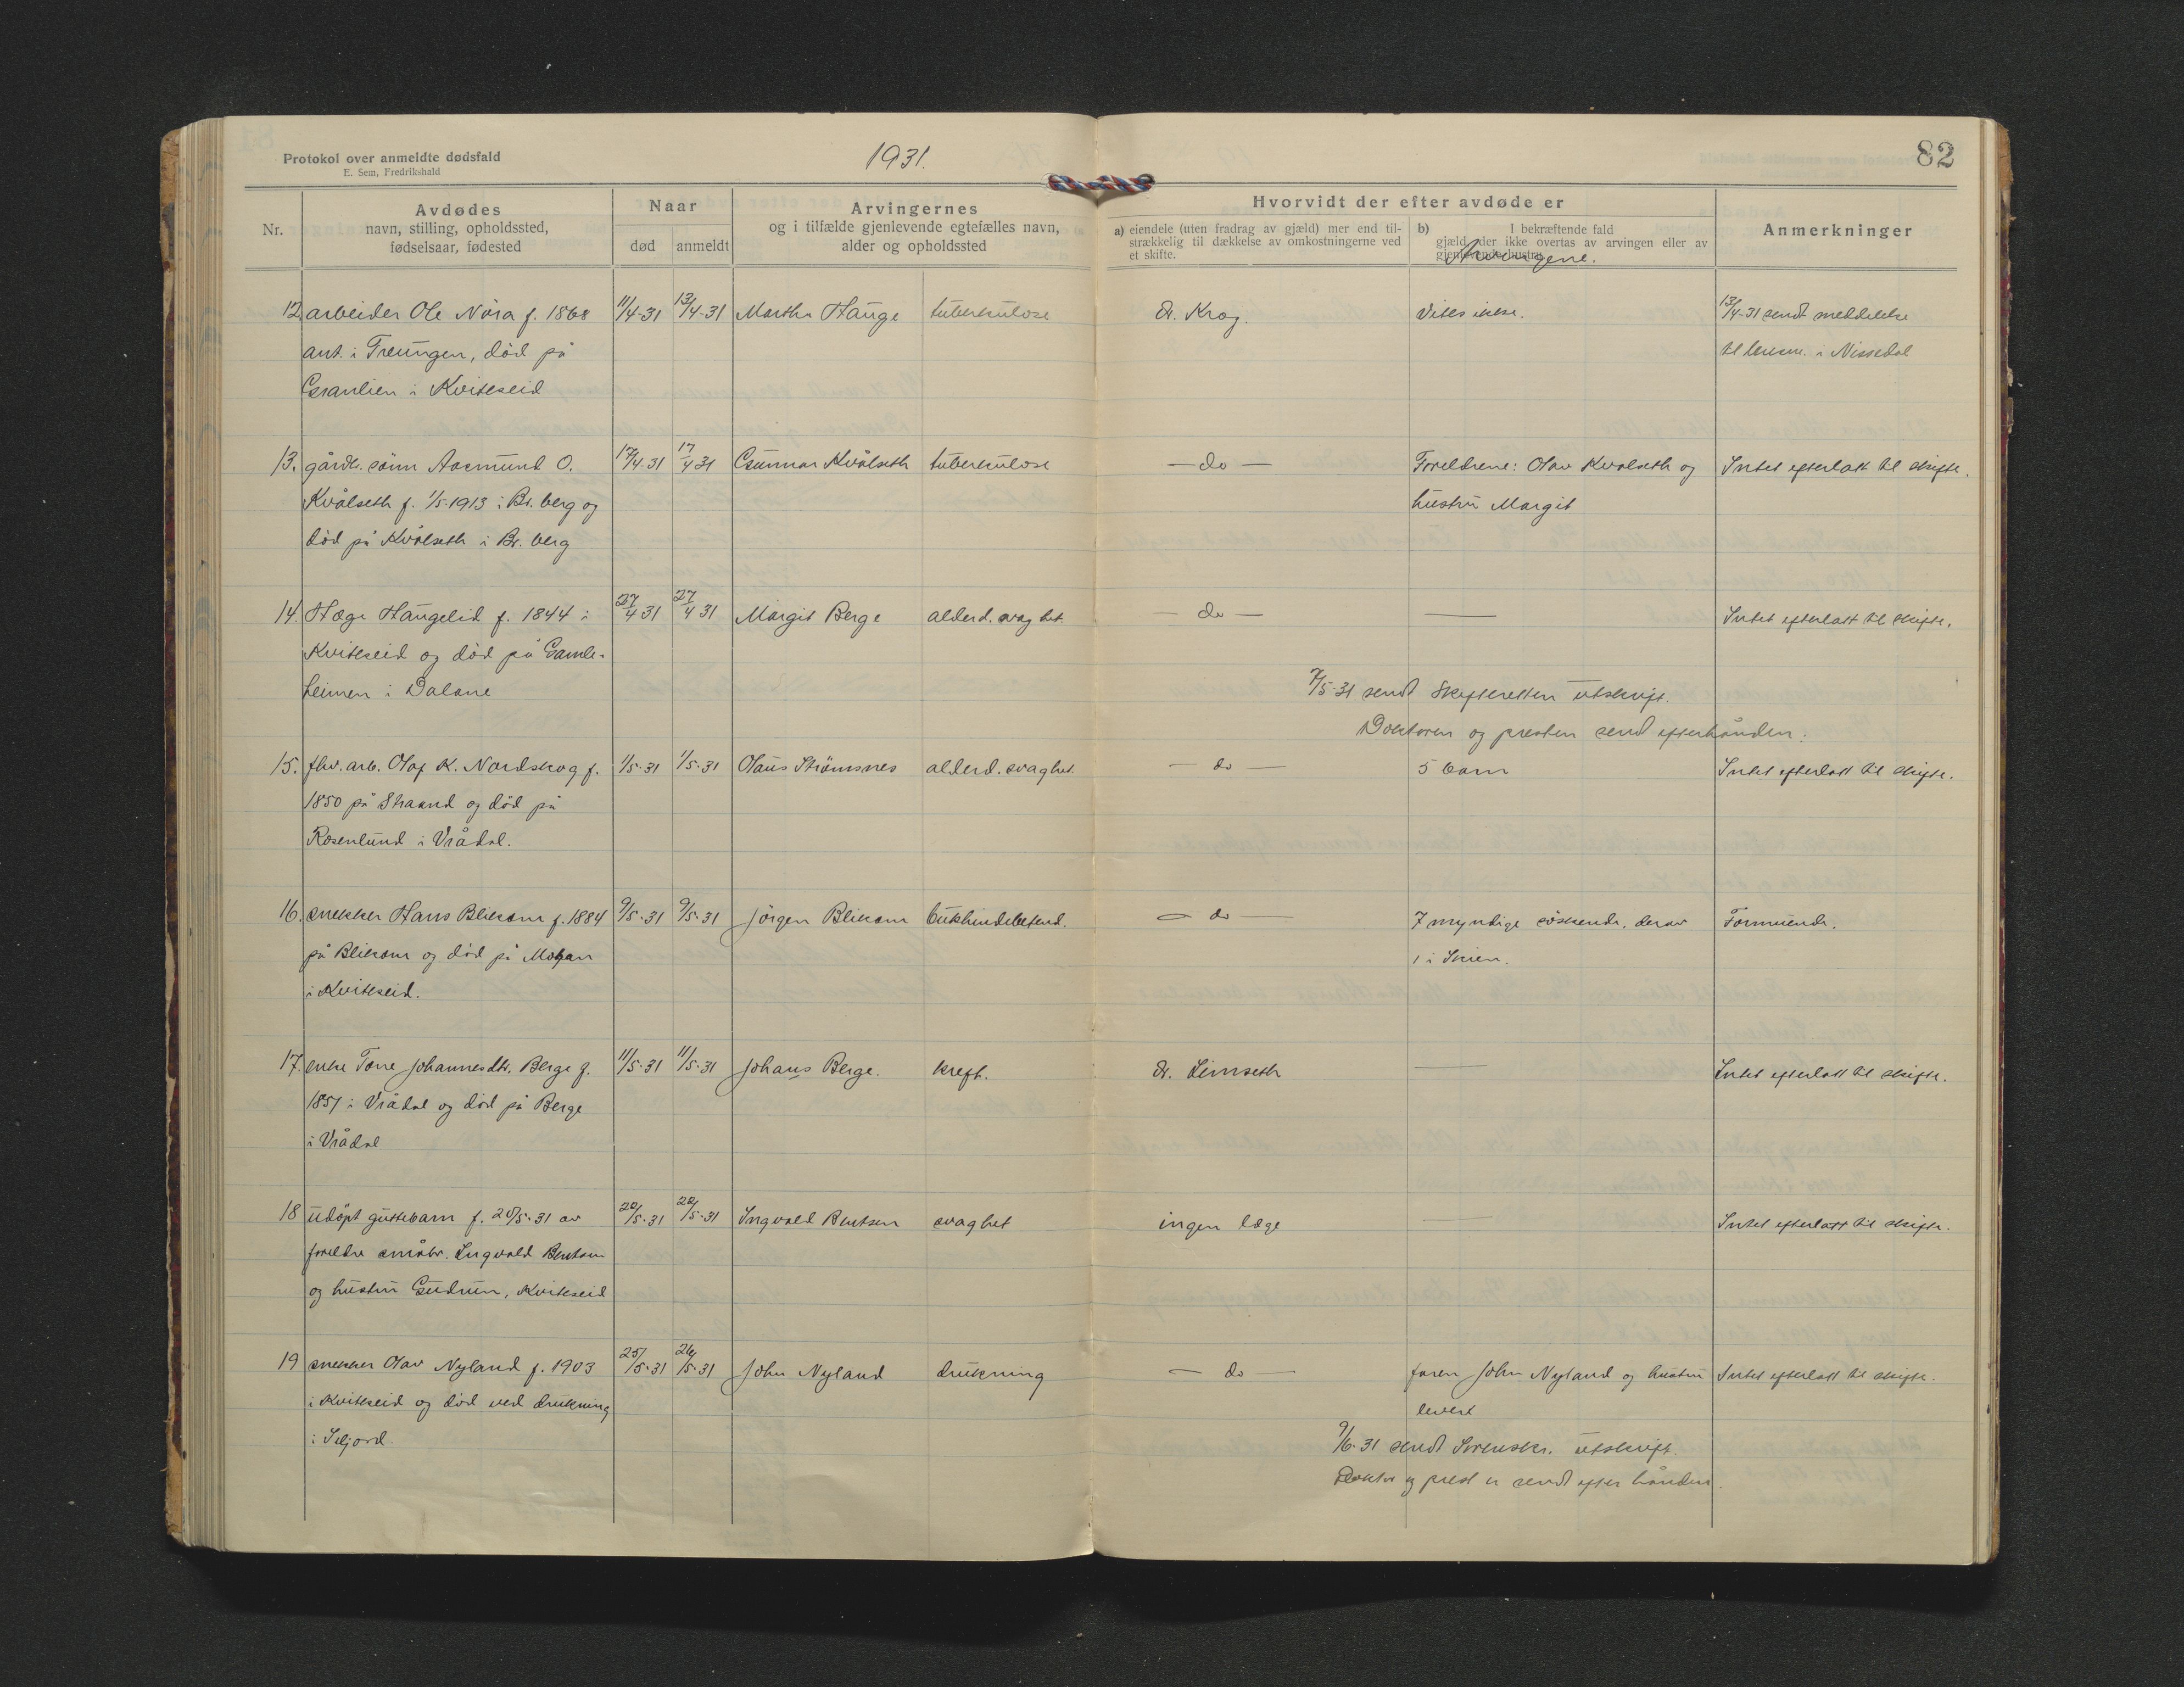 Protokol over anmeldte dødsfald
E. Sem, Fredrikshald
1931.
82
Nr.
Avdødes
navn, stilling, opholdssted,
fødselsaar, fødested
Naar
død
anmeldt
Arvingernes
og i tilfælde gjenlevende egtefælles navn,
alder og opholdssted
Hvorvidt der efter avdøde er
a) eiendele (uten fradrag av gjæld) mer end til-
strækkelig til dækkelse av omkostningerne ved
et skifte.
b) I bekræftende fald
gjæld, der ikke overtas av arvingen eller av
gjenlevende hustru
Arvingene.
Anmerkninger
12. arbeider Ole Nora f. 1868 11/4-31 13/4-31 Martha Hauge tuberkulose dr. Krag. vites ikke. 13/4-31 sendt meddelelse
ant. i Treungen, død på til lensm. i Nissedal
Granlien i Kviteseid
13. gårdb. sønn Aasmund O. 17/4-31 17/4 31 Gunnar Kvålseth tuberkulose — do — Foreldrene: Olav Kvalseth og Intet efterlatt til skifte.
Kvålseth f. 1/5-1913 i Br. berg og hustru Margit
død på Kvålseth i Br. berg
14. Hæge Haugelid f. 1844 i 27/4 31 27/4 31 Margit Berge alderd. svaghet — do — — Intet efterlatt til skifte.
Kviteseid og død på Gamle-
heimen i Dalane
7/5-31 sendt Skifteretten utskrift.
Doktoren og presten send efterhånden.
15. fhv. arb. Olaf K. Nordskog f. 1/5-31 1/5-31 Olaus Strømsnes alderd. svaghet — do — 5 barn Intet efterlatt til skifte.
1850 på Straand og død på
Rosenlund i Vrådal.
16. snekker Hans Blikom f. 1884 9/5-31 9/5-31 Jørgen Blikom bukhindebetend. — do — 7 myndige søskende, derav Formuende.
på Blikom og død på Mogan 1 i Skien.
i Kviteseid.
17. enke Tone Johannesdtr. Berge f. 11/5-31 11/5-31 Johans Berge. kreft. dr. Limseth — Intet efterlatt til skifte.
1851 i Vrådal og død på Berge
i Vrådal
18 udøpt guttebarn f. 20/5-31 av 20/5-31 22/5-31 Ingvald Bentsen svaghet ingen læge — Intet efterlatt til skifte.
foreldre småbr. Ingvald Bentsen
og hustru Gudrun, Kviteseid
19 snekker Olav Nyland f. 1903 25/5-31 26/5-31 John Nyland drukning — do — faren John Nyland og hustru Intet efterlatt til skifte.
i Kviteseid og død ved drukning levert
i Seljord.
9/6-31 sendt Sorenskr. utskrift.
Doktor og prest er sendt efter hånden.